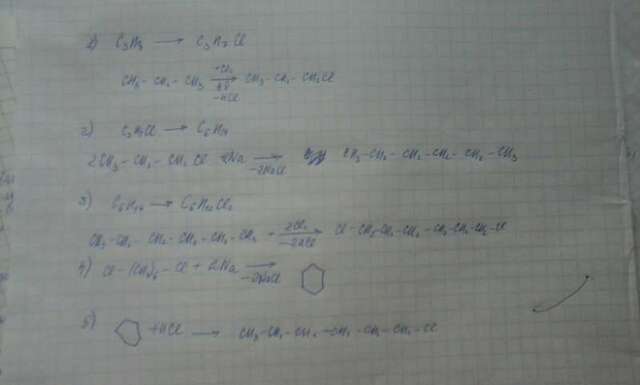 1) C3H8 → C3H7Cl
CH3 - CH2 - CH3 +Cl2 hν → -HCl CH3 - CH2 - CH2Cl
2) C3H7Cl → C6H14
2CH3 - CH2 - CH2 Cl +2Na → -2NaCl CH3 - CH2 - CH2 - CH2 - CH2 - CH3
3) C6H14 → C6H12Cl2
CH3 - CH2 - CH2 - CH2 - CH2 - CH3 2Cl2 → -2HCl Cl - CH2 - CH2 - CH2 - CH2 - CH2 - CH2 - Cl
4) Cl - (CH2)6 - Cl + 2Na → -2NaCl
5) +HCl → CH3 - CH2 - CH2 - CH2 - CH2 - CH2 - Cl